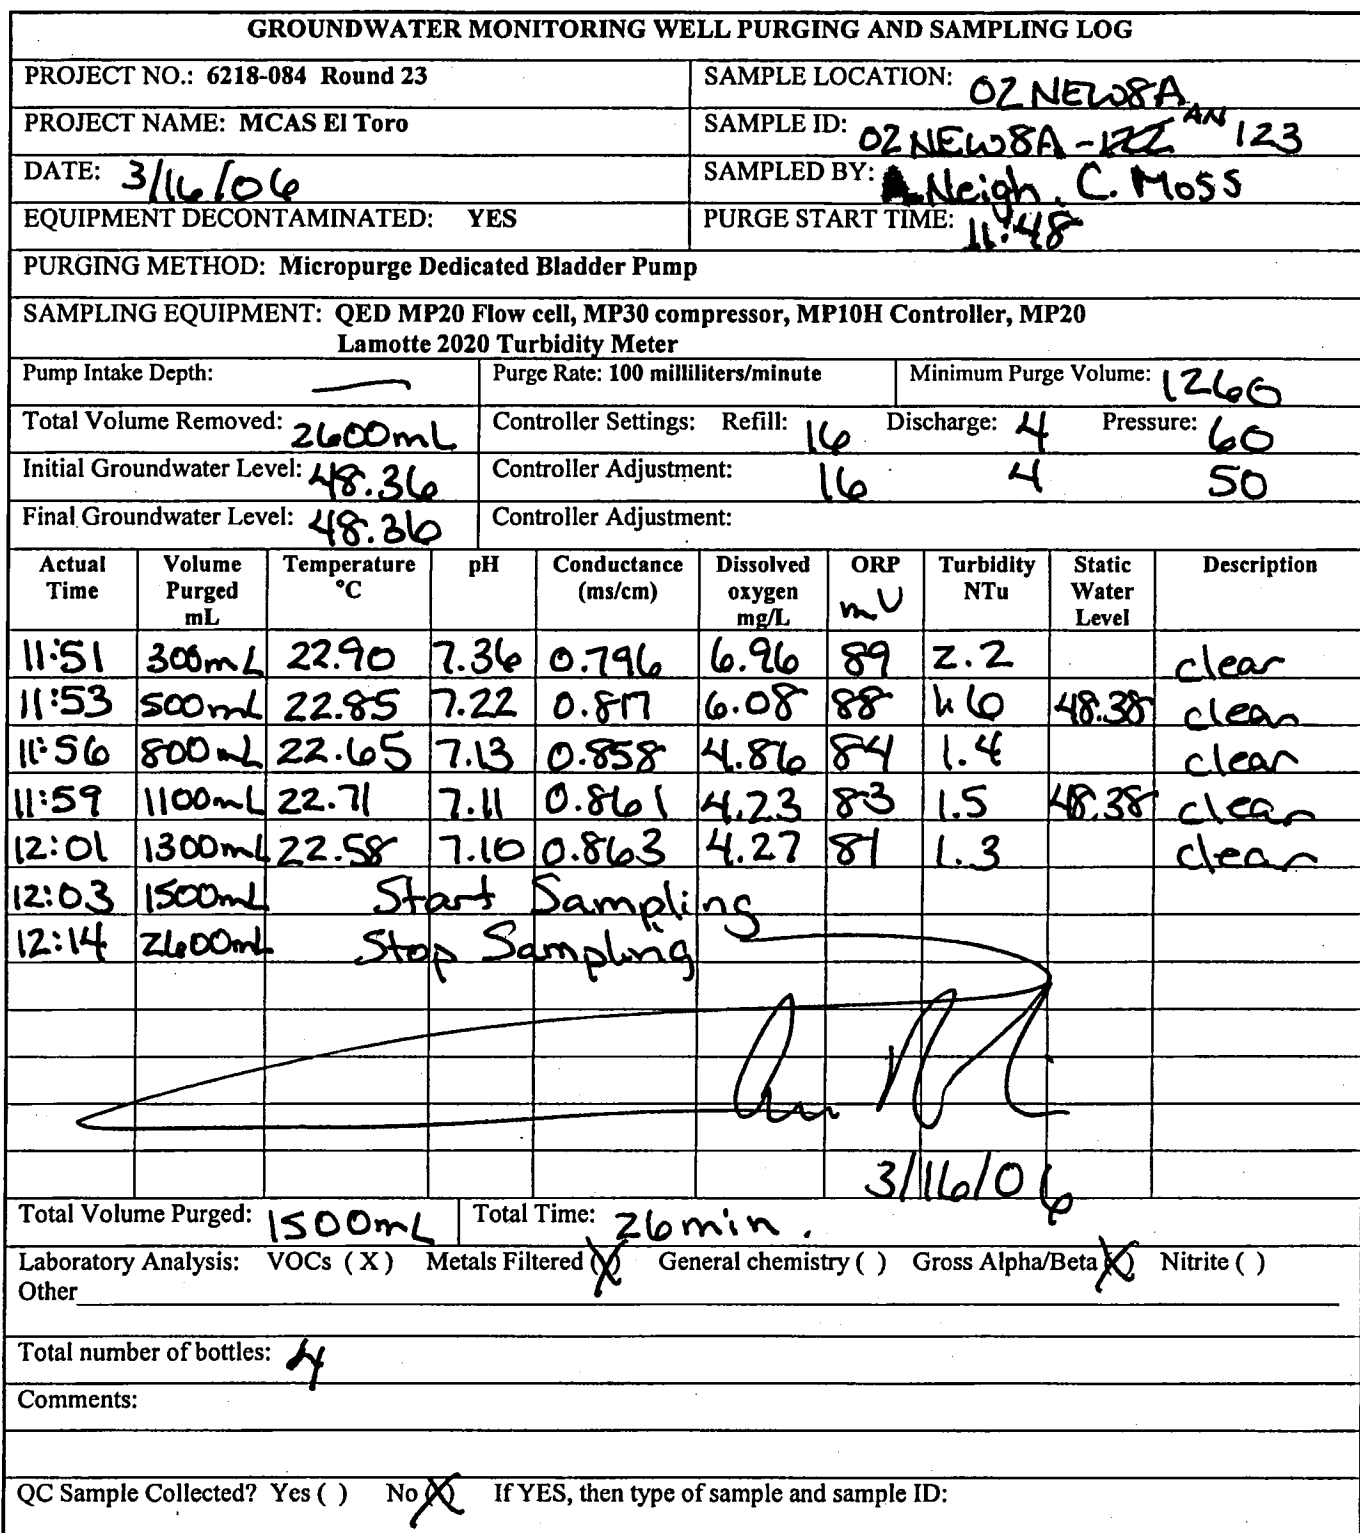 GROUNDWATER MONITORING WELL PURGING AND SAMPLING LOG
PROJECT NO.: 6218-084 Round 23 SAMPLE LOCATION: 02NEW8A
PROJECT NAME: MCAS El Toro SAMPLE ID: 02NEW8A-122 AN 123
DATE: 3/16/06 SAMPLED BY: A. Neigh, C. Moss
EQUIPMENT DECONTAMINATED: YES PURGE START TIME: 11:48
PURGING METHOD: Micropurge Dedicated Bladder Pump
SAMPLING EQUIPMENT: QED MP20 Flow cell, MP30 compressor, MP10H Controller, MP20
Lamotte 2020 Turbidity Meter
Pump Intake Depth: — Purge Rate: 100 milliliters/minute Minimum Purge Volume: 1260
Total Volume Removed: 2600mL Controller Settings: Refill: 16 Discharge: 4 Pressure: 60
Initial Groundwater Level: 48.36 Controller Adjustment: 16 4 50
Final Groundwater Level: 48.36 Controller Adjustment:
Actual Time Volume Purged mL Temperature °C pH Conductance (ms/cm) Dissolved oxygen mg/L ORP mV Turbidity NTu Static Water Level Description
11:51 300mL 22.90 7.36 0.796 6.96 89 2.2 clear
11:53 500mL 22.85 7.22 0.817 6.08 88 1.6 48.38 clear
11:56 800mL 22.65 7.13 0.858 4.86 84 1.4 clear
11:59 1100mL 22.71 7.11 0.861 4.23 83 1.5 48.38 clear
12:01 1300mL 22.58 7.10 0.863 4.27 81 1.3 clear
12:03 1500mL Start Sampling
12:14 2600mL Stop Sampling
3/16/06
Total Volume Purged: 1500mL Total Time: 26min.
Laboratory Analysis: VOCs (X) Metals Filtered (X) General chemistry ( ) Gross Alpha/Beta (X) Nitrite ( )
Other
Total number of bottles: 4
Comments:
QC Sample Collected? Yes ( ) No (X) If YES, then type of sample and sample ID: